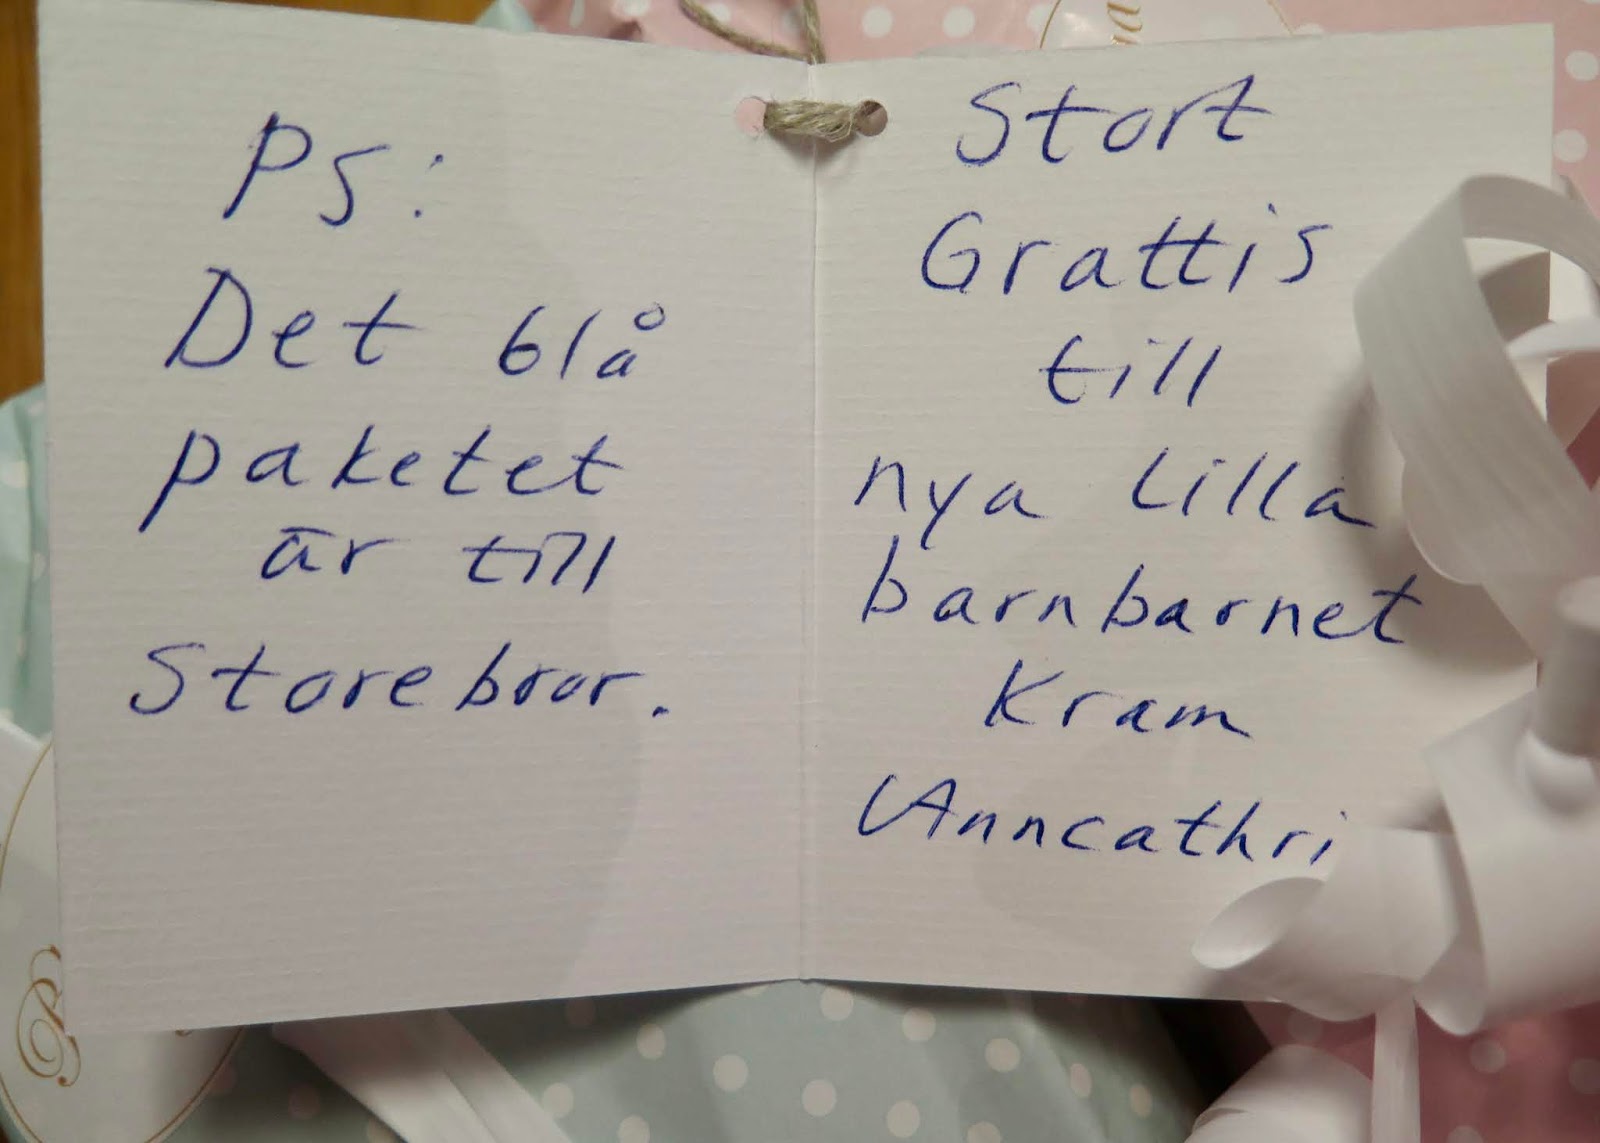 PS:
Det blå
paketet
är till
Storebror.
Stort
Grattis
till
nya Lilla
barnbarnet
Kram
Anncathri